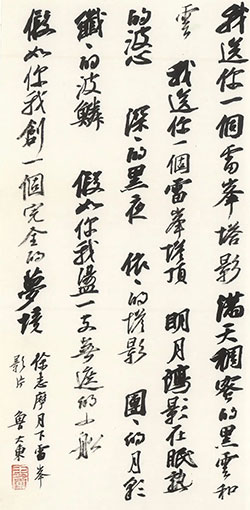 我送你一個雷峯塔影 滿天稠密的黑雲和
雲 我送你一個雷峯塔頂 明月瀉影在眠熟
的波心 深〻的黑夜 依〻的塔影 團〻的月彩
纖〻的波鱗 假如你我盪一支無遮的小船
假如你我創一個完全的夢境
徐志摩月下雷峯
影片 魯大東